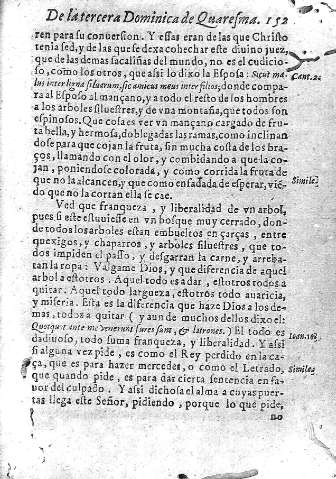 De la tercera Dominica de Quaresma. 152
ren para su conuersion. Y essas eran de las que Christo
tenia sed, y de las que se dexa cohechar este diuino juez,
que de las demas sacaliñas del mundo, no es el cudicio-
so, como los otros, que assi lo dixo la Esposa: Sicut ma-
lus inter ligna siluarum, sic amicus meus inter filios; donde compa-
Cant. 2.
ra al Esposo al mançano, y a todo el resto de los hombres
a los arboles siluestres, y de vna montaña, que todos son
espinosos. Que cosa es ver vn mançano cargado de fru-
ta bella, y hermosa, doblegadas las ramas, como inclinan
dose para que cojan la fruta, sin mucha costa de los bra-
ços, llamando con el olor, y combidando a que la co-
jan, poniendose colorada, y como corrida la fruta de
que no la alcancen, y que como enfadada de esperar, viē-
Simile
do que no la cortan ella se cae.
Ved que franqueza, y liberalidad de vn arbol,
pues si este estuuiesse en vn bosque muy cerrado, don-
de todos los arboles estan embueltos en çarças, entre
quexigos, y chaparros, y arboles siluestres, que to-
dos impiden el passo, y desgarran la carne, y arreba-
tan la ropa: Valgame Dios, y que diferencia de aquel
arbol a estotros. Aquel todo es a dar, estotros todos a
quitar. Aquel todo largueza, estotros todo auaricia,
y miseria. Esta es la diferencia que haze Dios a los de-
mas, todos a quitar (y aun de muchos dellos dixo el:
Quotquot ante me venerunt fures sunt, & latrones.) El todo es
dadiuoso, todo suma franqueza, y liberalidad. Y assi
Ioan. 10.
si alguna vez pide, es como el Rey perdido en la ca-
ça, que es para hazer mercedes, o como el Letrado,
Simile
que quando pide, es para dar cierta sentencia en fa-
uor del culpado. Y assi dichosa el alma a cuyas puer-
tas llega este Señor, pidiendo, porque lo que pide,
no